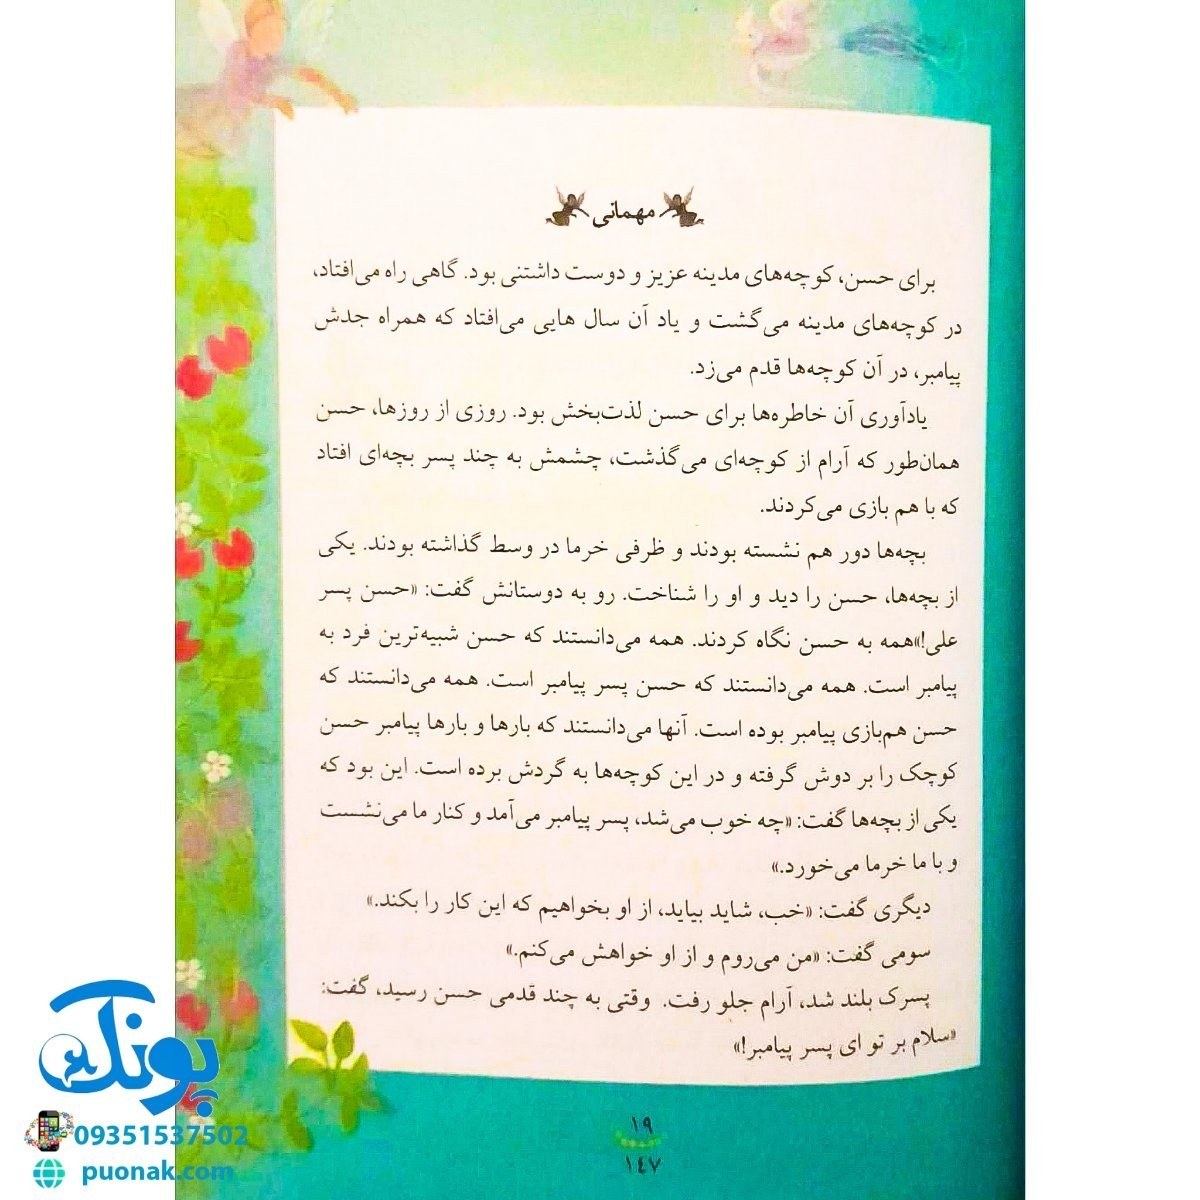 مهمانی
برای حسن، کوچه‌های مدینه عزیز و دوست داشتنی بود. گاهی راه می‌افتاد،
در کوچه‌های مدینه می‌گشت و یاد آن سال هایی می‌افتاد که همراه جدش
پیامبر، در آن کوچه‌ها قدم می‌زد.
یادآوری آن خاطره‌ها برای حسن لذت‌بخش بود. روزی از روزها، حسن
همان‌طور که آرام از کوچه‌ای می‌گذشت، چشمش به چند پسر بچه‌ای افتاد
که با هم بازی می‌کردند.
بچه‌ها دور هم نشسته بودند و ظرفی خرما در وسط گذاشته بودند. یکی
از بچه‌ها، حسن را دید و او را شناخت. رو به دوستانش گفت: «حسن پسر
علی!»همه به حسن نگاه کردند. همه می‌دانستند که حسن شبیه‌ترین فرد به
پیامبر است. همه می‌دانستند که حسن پسر پیامبر است. همه می‌دانستند که
حسن هم‌بازی پیامبر بوده است. آنها می‌دانستند که بارها و بارها پیامبر حسن
کوچک را بر دوش گرفته و در این کوچه‌ها به گردش برده است. این بود که
یکی از بچه‌ها گفت: «چه خوب می‌شد، پسر پیامبر می‌آمد و کنار ما می‌نشست
و با ما خرما می‌خورد.»
دیگری گفت: «خب، شاید بیاید، از او بخواهیم که این کار را بکند.»
سومی گفت: «من می‌روم و از او خواهش می‌کنم.»
پسرک بلند شد، آرام جلو رفت. وقتی به چند قدمی حسن رسید، گفت:
«سلام بر تو ای پسر پیامبر!»
۱۹
۱۴۷
پونک
09351537502
puonak.com